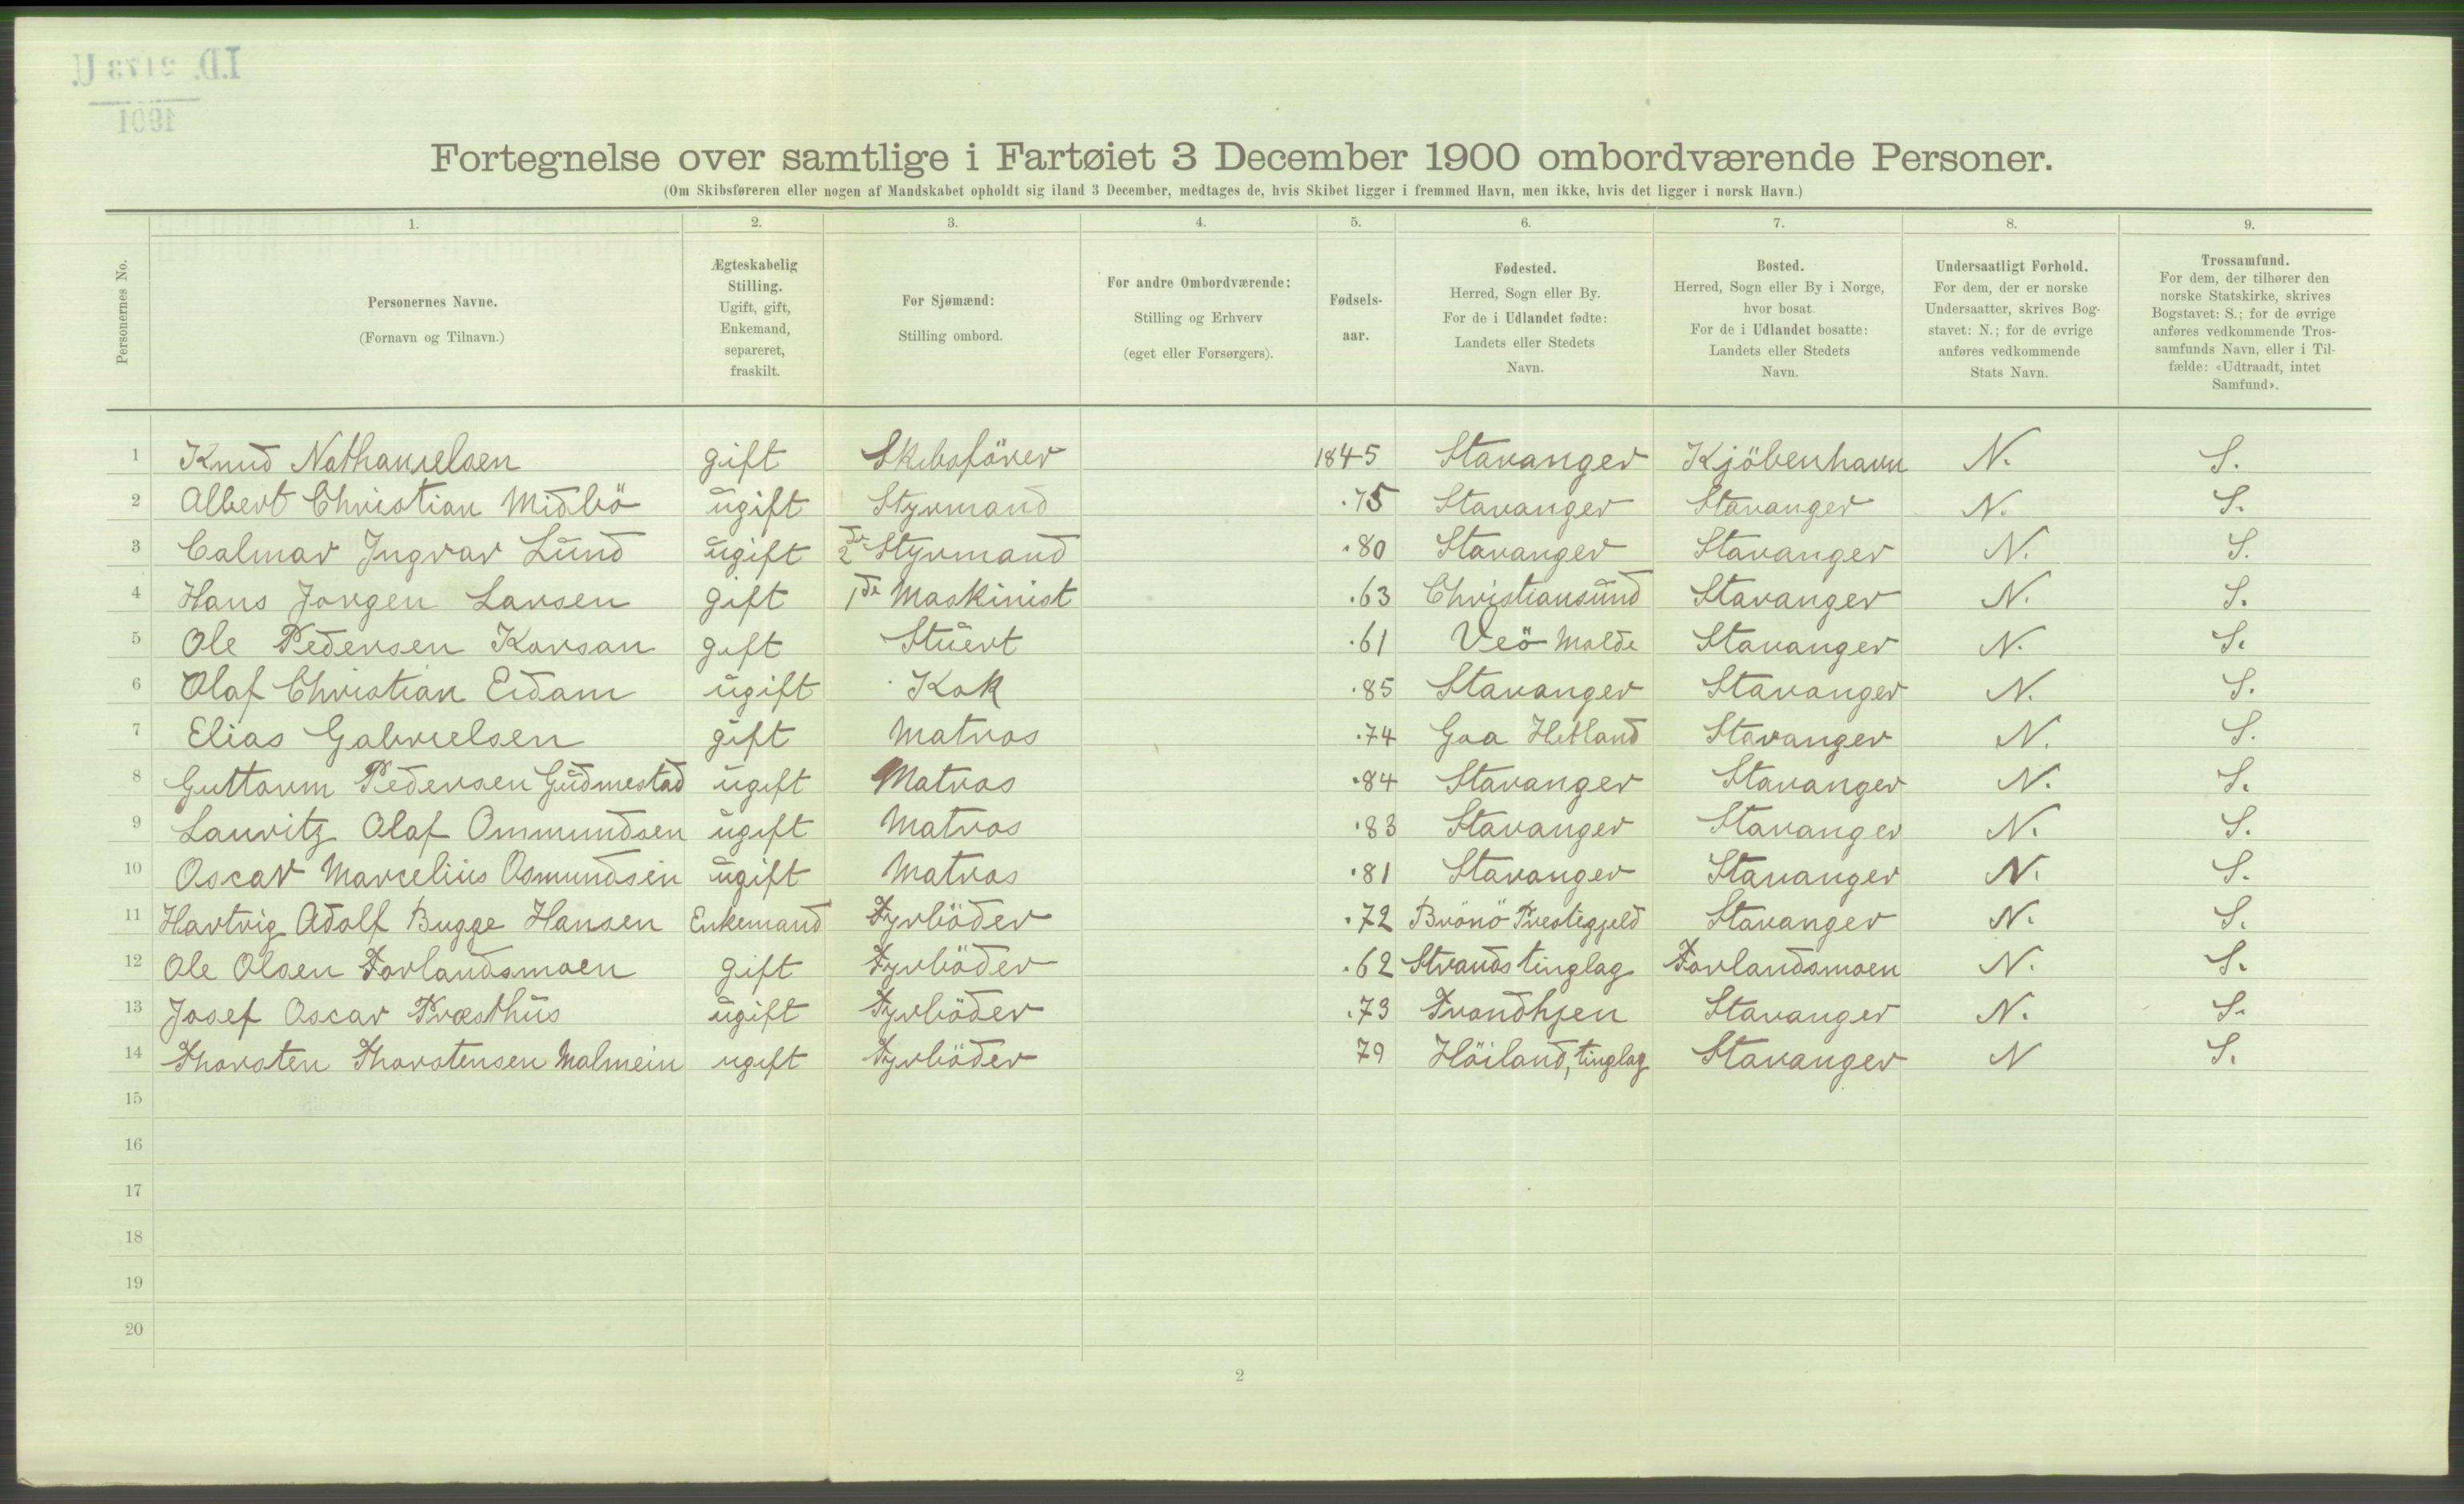 I.D. 2173 U.
1901
Fortegnelse over samtlige i Fartøiet 3 December 1900 ombordværende Personer.
(Om Skibsføreren eller nogen af Mandskabet opholdt sig iland 3 December, medtages de, hvis Skibet ligger i fremmed Havn, men ikke, hvis det ligger i norsk Havn.)
Personernes No.
1. Personernes Navne. (Fornavn og Tilnavn.)
2. Ægteskabelig Stilling. Ugift, gift, Enkemand, separeret, fraskilt.
3. For Sjømænd: Stilling ombord.
4. For andre Ombordværende: Stilling og Erhverv (eget eller Forsørgers).
5. Fødsels-aar.
6. Fødested. Herred, Sogn eller By. For de i Udlandet fødte: Landets eller Stedets Navn.
7. Bosted. Herred, Sogn eller By i Norge, hvor bosat. For de i Udlandet bosatte: Landets eller Stedets Navn.
8. Undersaatligt Forhold. For dem, der er norske Undersaatter, skrives Bog-stavet: N.; for de øvrige anføres vedkommende Stats Navn.
9. Trossamfund. For dem, der tilhører den norske Statskirke, skrives Bogstavet: S.; for de øvrige anføres vedkommende Tros-samfunds Navn, eller i Til-fælde: «Udtraadt, intet Samfund».
1 Knud Nathanielsen gift Skibsförer 1845 Stavanger Kjöbenhavn N. S.
2 Albert Christian Midbö ugift Styrmand .75 Stavanger Stavanger N. S.
3 Calmar Ingvar Lund ugift 2de Styrmand .80 Stavanger Stavanger N. S.
4 Hans Jorgen Larsen gift 1ste Maskinist .63 Christiansund Stavanger N. S.
5 Ole Pedersen Korsan gift Stuert .61 Veö Molde Stavanger N. S.
6 Olaf Christian Eidam ugift Kok .85 Stavanger Stavanger N. S.
7 Elias Gabrielsen gift Matros .74 Goa Hetland Stavanger N. S.
8 Guttorm Pedersen Gudmestad ugift Matros .84 Stavanger Stavanger N. S.
9 Lauritz Olaf Ommundsen ugift Matros .83 Stavanger Stavanger N. S.
10 Oscar Marcelius Osmundsen ugift Matros .81 Stavanger Stavanger N. S.
11 Hartvig Adolf Bugge Hansen Enkemand Fyrböder .72 Brönö Prestegjeld Stavanger N. S.
12 Ole Olsen Forlandsmoen gift Fyrböder .62 Strands tinglag Forlandsmoen N. S.
13 Josef Oscar Præsthus ugift Fyrböder .73 Trondhjen Stavanger N. S.
14 Thorsten Thorstensen Malmein ugift Fyrböder 79 Höiland, tinglag Stavanger N S.
15
16
17
18
19
20
2